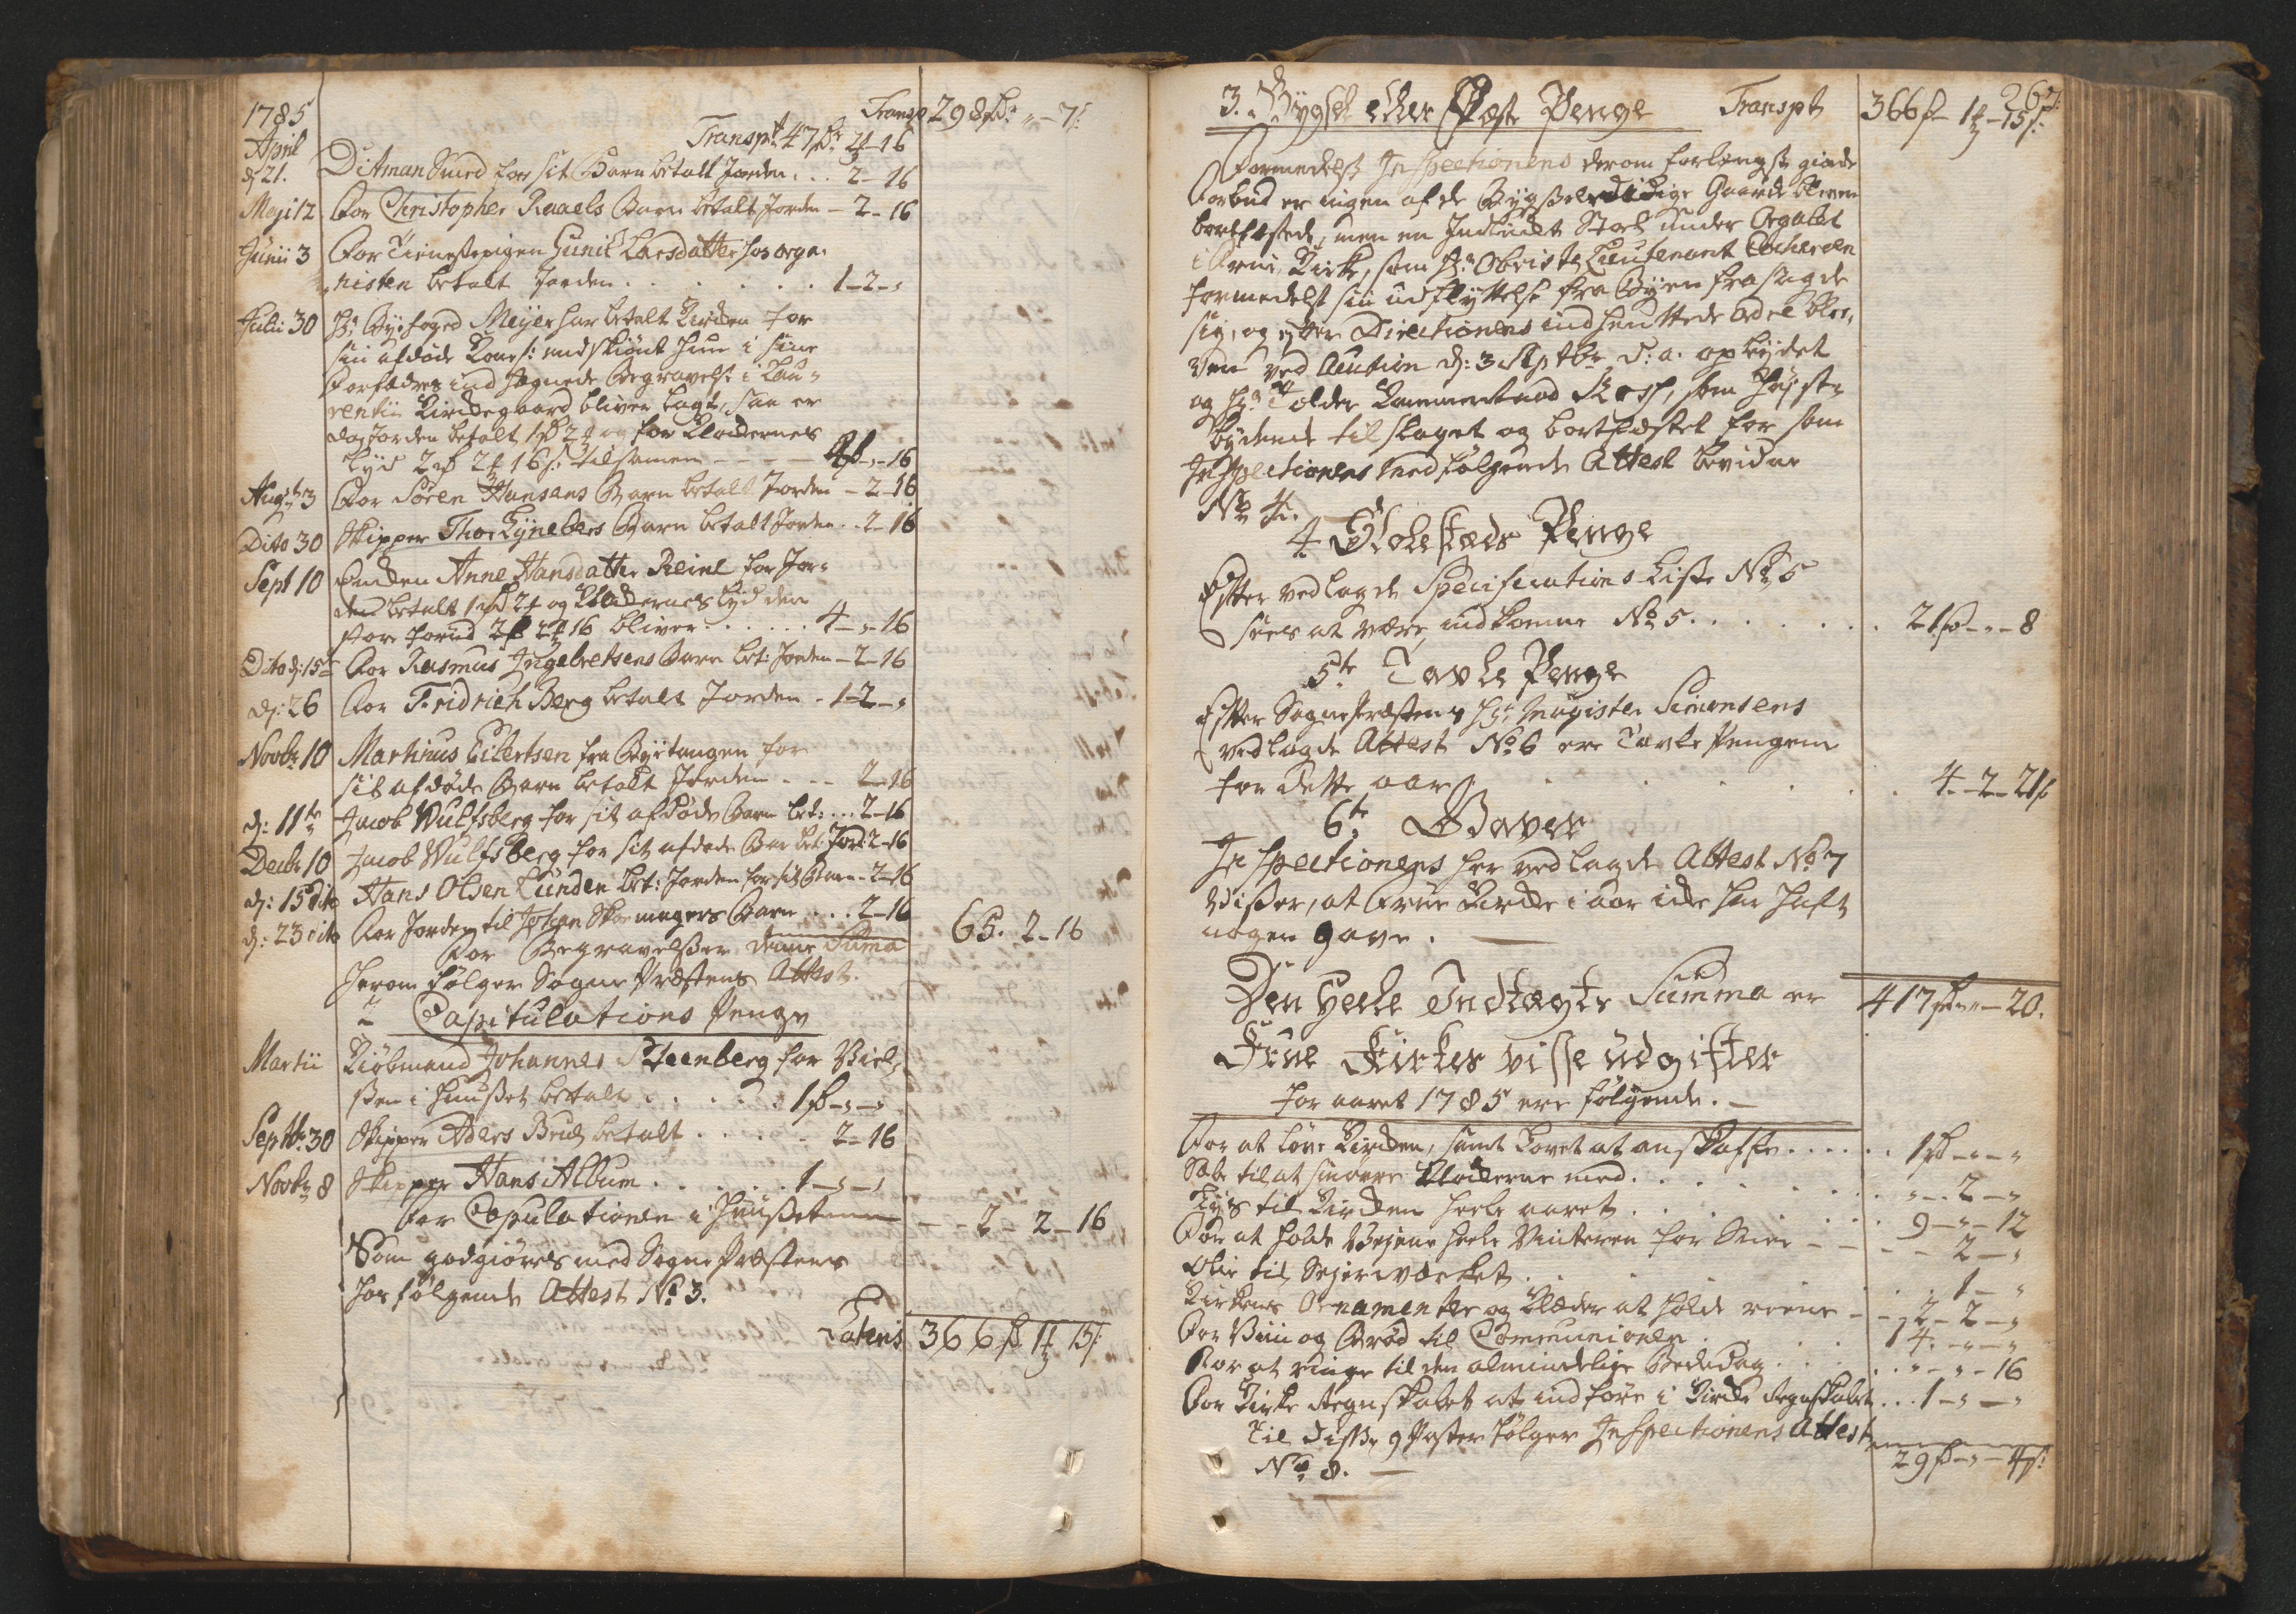 1785
Transp 298 rd " - 7 s:
Transpt 47 rd 2 - 16
April
d 21. Ditman Smed for sit Barn betalt Jorden . . . 2 - 16
Maji 12 For Christopher Raaels Barn betalt Jorden - 2 - 16
Junii 3 For Tienestepigen Gunil Larsdatter hos orga-
nisten betalt Jorden . . . . . . . 1 - 2 - "
Julii 30 Hr Byefoged Meyer har betalt Kirken for
sin afdøde Kone s: endskiønt hun i sine
Forfædres ind hægnede Begravelse i Lau-
rentii Kirkegaard bliver lagt, saa er
dog Jorden betalt 1 rd 2 og for Klokkernes
Lyd 2 rd 2 16 s: tilsamen - - - - 4 rd - " - 16
Augst 3 For Søren Hansens Barn betalt Jorden - 2 - 16
Dito 30 Skipper Thor Lynebers Barn betalt Jorden . . 2 - 16
Sept 10 Enken Anne Hansdatter Reine for Jor-
den betalt 1 rd 2 og Klokkernes Lyd den
store forud 2 rd 2 16 bliver . . . . . . 4 - " - 16
Dito d: 15 For Rasmus Ingebretsens Barn bet: Jorden - 2 - 16
d: 26 For Fridrich Berg betalt Jorden - 1 - 2 - "
Novbr 10 Martinus Eilertsen fra Byetangen for
sit afdøde Barn betalt Jorden . . - - 2 - 16
d: 11te Jacob Wulfsberg for sit afdøde Barn bet: . . . 2 - 16
Decbr 10 Jacob Wulfsberg for sit afdøde Barn bet: Jord: 2 - 16
d: 15 dito Hans Olsen Lunden bet: Jorden for sit Barn - 2 - 16
d: 23 dito For Jorden til Johan Skomagers Barn . . . 2 - 16
For Begravelser denne Suma 65. 2 - 16
herom følger Sogne Præstens Attest.
2 Capitulations Penge
Martii Kiøbmand Johannes Steenberg for Viel-
sen i Huuset betalt . . . . . . 1 rd - " - "
Septbr 30 Skipper Aders Brud betalt . . . . - 2 - 16
Novbr 8 Skipper Hans Album . . . . . . 1 - " - "
For Copulationer i Huuset - - - 2 - 2 - 16
Som godgiøres med Sogne Præstens
her følgende Attest No 3.
Lateris 366 rd 1 15 s:
267.
3. Bygsel eller Fæste Penge Transpt 366 rd 1 - 15 s:
Formedelst Inspectionens derom forlængst giorde
Forbud er ingen af de Bygselledige Gaarde bleven
bortfæstede, men en Indlukt Stoel under Orgalet
i Frue Kirke, som Hr Obriste Lieutenant
formedelst sin udflyttelse fra Byen frasagde
sig, og efter Directionens indhentede ordre ble-
ven ved Auction d: 3 Septbr d: a. opbydet
og Hr Tolder Kammerraad Ross, som Høyst-
bydende tilslaget og bortfæstet for som
Inspectionens medfølgende Attest Beviiser
No 4.
4 Stolestads Penge
Efter vedlagde Specifications Liste No 5
sees at være indkomne No 5 . . . . . . . 21 rd - " - 8
5te Tavle Penge
Efter Sogne Præstens Hr Magister Simonsens
vedlagde Attest No 6 ere Tavle Pengene
for dette aar . . . . . . 4 - 2 - 21 s
6te Gaver
Inspectionens her vedlagde Attest No 7
Viser, at Frue Kirke i aar ikke har haft
nogen gave. -
Den heele Indtægts Summa er 417 rd " - 20.
Frue Kirkes visse udgifter
for aaret 1785 ere følgende. -
For at løve Kirken, samt Løvet at anskaffe . . . . . . 1 rd - " - "
Sæbe til at smørre Klokkerne med . . . . . . . " - 2 - "
Lys til Kirken heele aaret . . . . . . . 9 - " - 12
For at holde Veyene heele Vinteren for Snee - - - - 2 - "
Olie til Seyerværket . . . . . . . 1 - "
Kirkens Ornamenter og Klæder at holde reene - - 2 - 2 - "
For Viin og Brød til Communionen . . . . 14. - " - "
For at ringe til den almindelige Bededag . . . . . " - " - 16
For Kirke Regnskabet at indføre i Kirke Regnskabet . . . 1 - " - "
Til disse 9 Poster følger Inspectionens Attest
No 8. - 29 rd - " - 4 s: